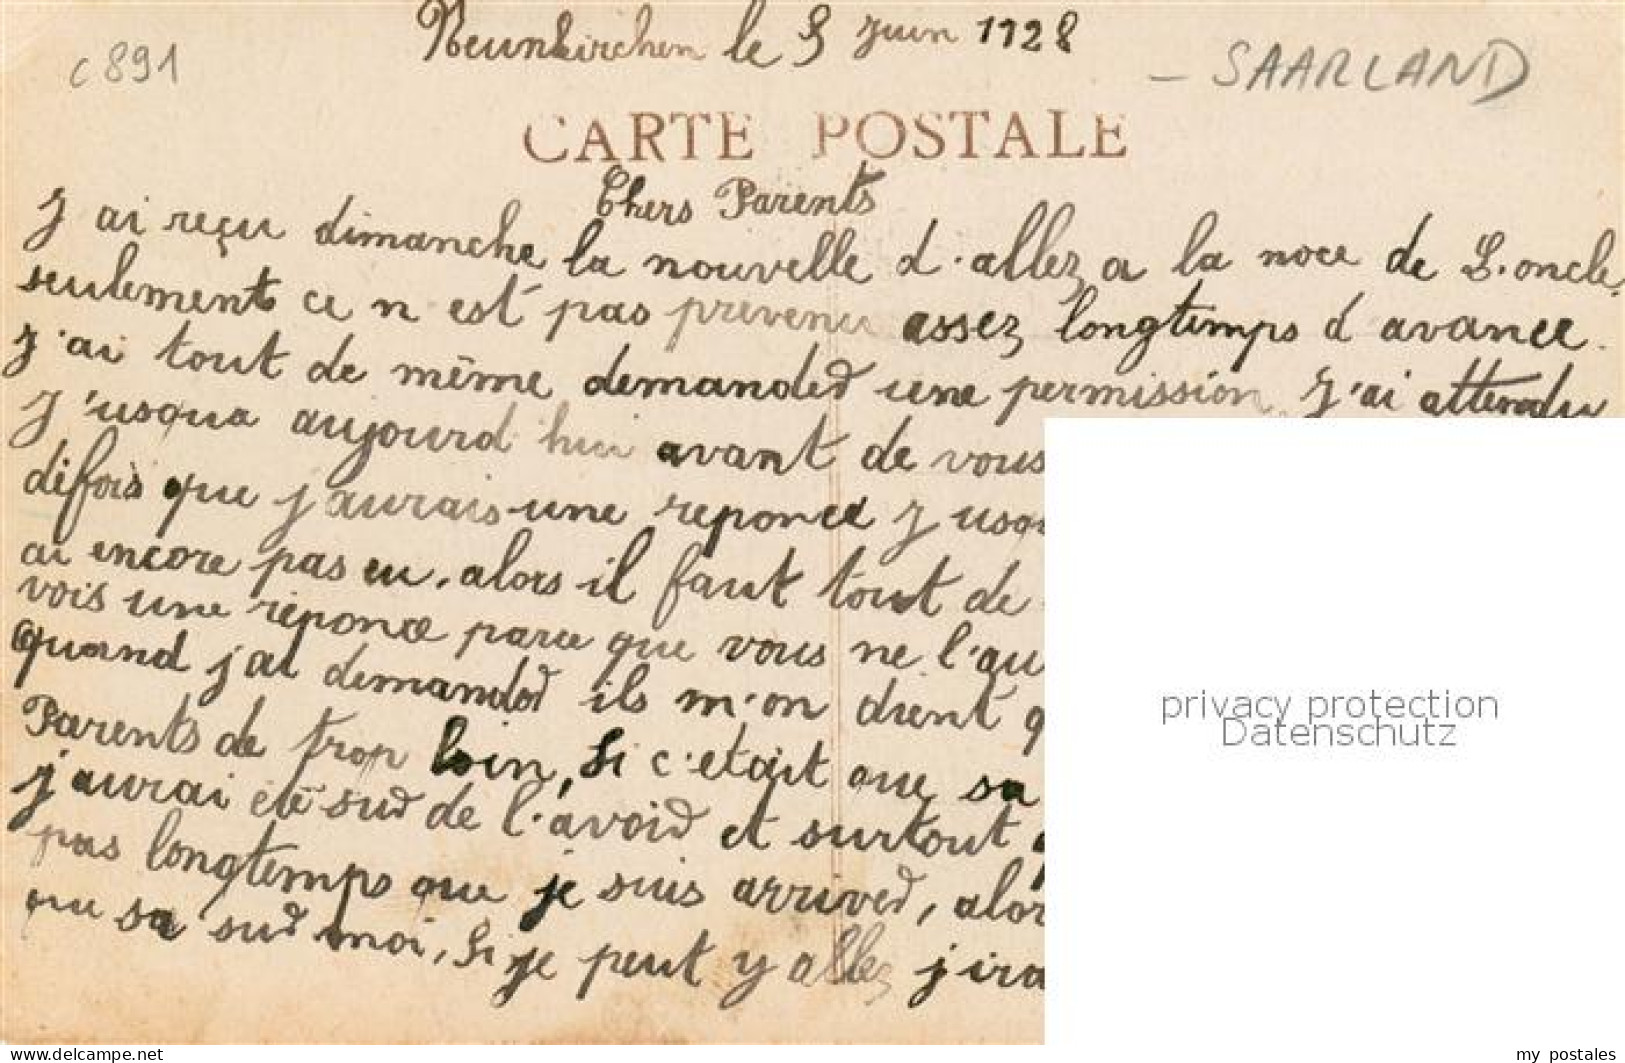 Neunkirchen le 9 Juin 1928
c891
- SAARLAND
CARTE POSTALE
Chers Parents
J ai reçu dimanche la nouvelle d.allez a la noce de L.oncle,
seulements ce n est pas prevenu assez longtemps d avance.
J'ai tout de même demanded une permission J'ai attendu
J'usqua aujourd hui avant de vous
défois que j aurais une reponce J usq
ai encore pas eu. alors il faut tout de
vois une réponce parce que vous ne l'au
quand j'ai demanded ils m'on dient q
Parents de trop loin, Si c'etait que sa
j'aurai été sur de l'avoir et surtout
pas longtemps que je suis arrived, alor
que sa sur moi, Si je peut y allez j ira
privacy protection
Datenschutz
my_postales
delcampe.net